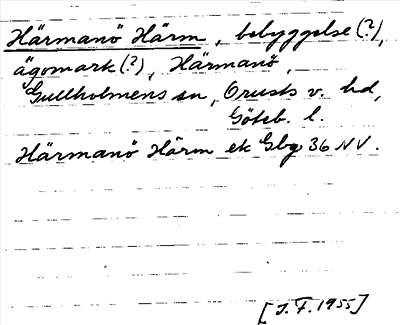 Härmanö Härm, bebyggelse(?),
ägomark(?), Härmanö,
Gullholmens sn, Orusts v. hd,
Göteb. l.
Härmanö Härm ek Gbg 36 NV.
[J.F. 1955]